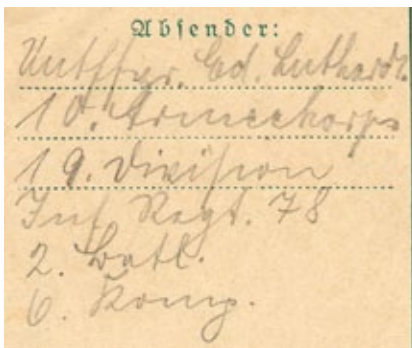 Absender:
Untffzr. Ed. Luthardt.
10. Armeekorps
19. Division
Inf Regt. 78
2. Batl.
6. Komp.